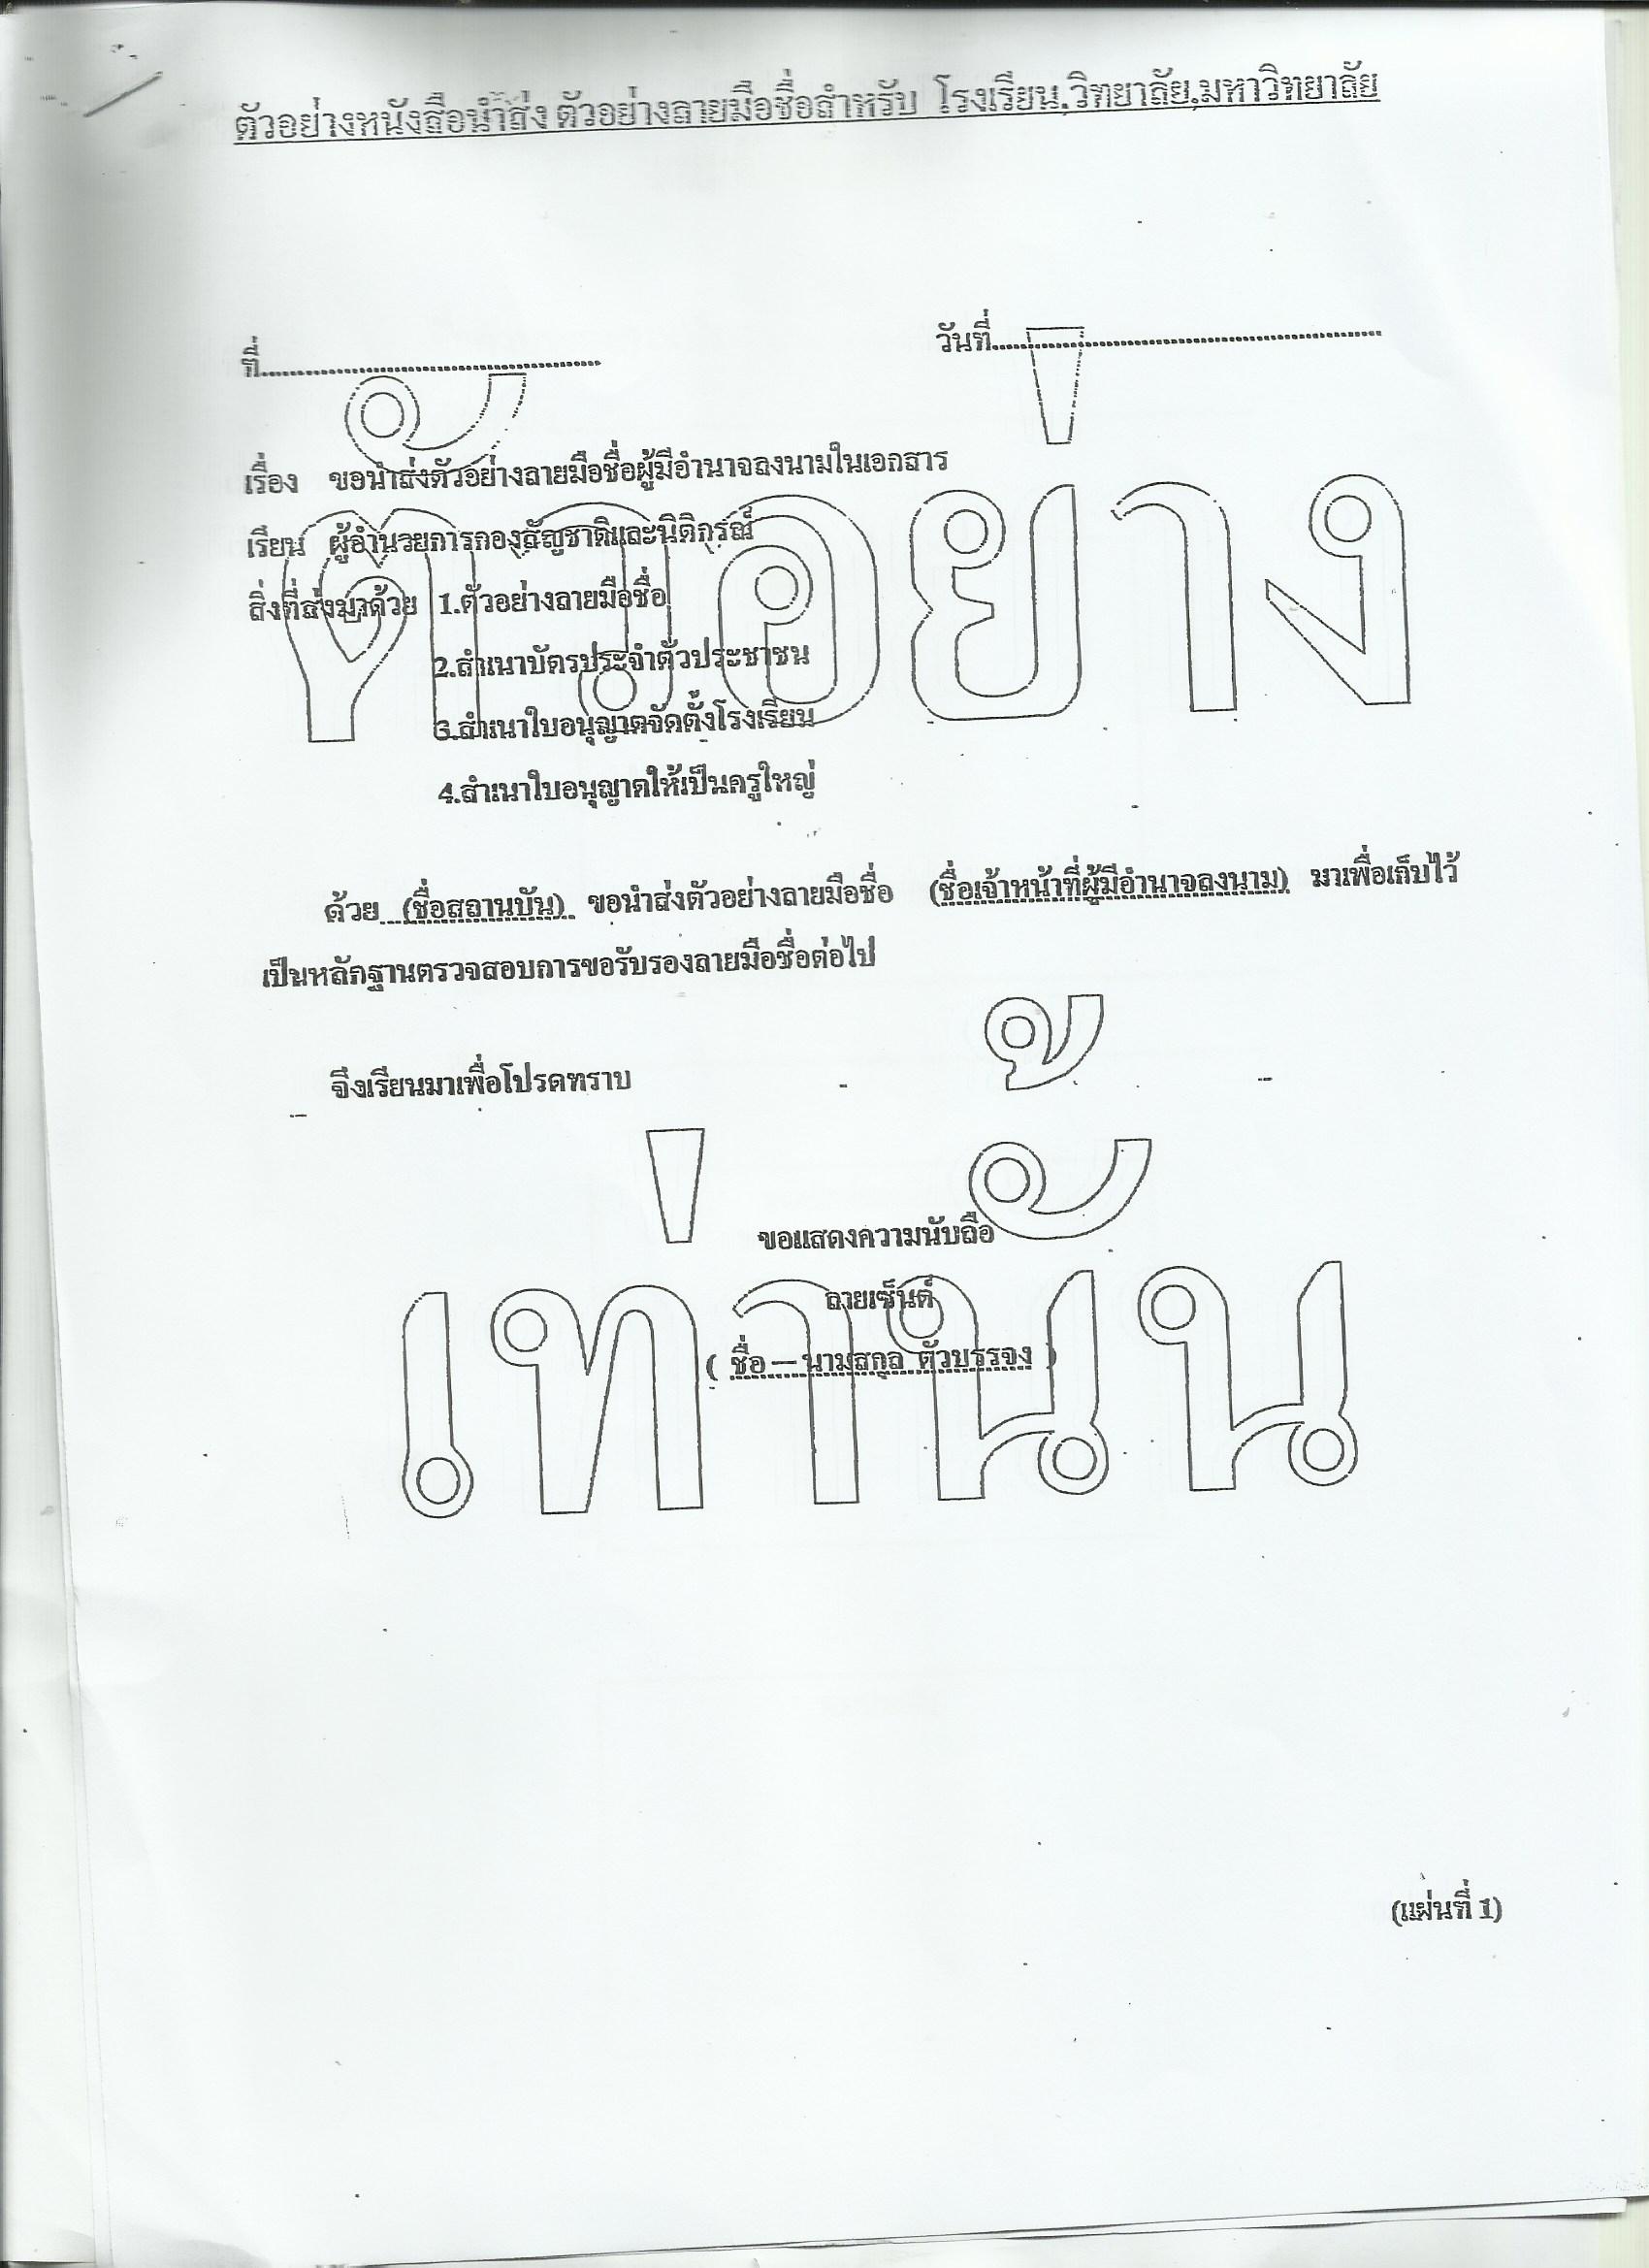 ตัวอย่างหนังสือนำส่ง ตัวอย่างลายมือชื่อสำหรับ โรงเรียน,วิทยาลัย,มหาวิทยาลัย
ที่.................................................... วันที่............................................................
เรื่อง ขอนำส่งตัวอย่างลายมือชื่อผู้มีอำนาจลงนามในเอกสาร
เรียน ผู้อำนวยการกองสัญชาติและนิติกรณ์
สิ่งที่ส่งมาด้วย 1.ตัวอย่างลายมือชื่อ
2.สำเนาบัตรประจำตัวประชาชน
3.สำเนาใบอนุญาตจัดตั้งโรงเรียน
4.สำเนาใบอนุญาตให้เป็นครูใหญ่
ตัวอย่าง
ด้วย (ชื่อสถานบัน) ขอนำส่งตัวอย่างลายมือชื่อ (ชื่อเจ้าหน้าที่ผู้มีอำนาจลงนาม) มาเพื่อเก็บไว้
เป็นหลักฐานตรวจสอบการขอรับรองลายมือชื่อต่อไป
จึงเรียนมาเพื่อโปรดทราบ
ขอแสดงความนับถือ
ลายเซ็นต์
( ชื่อ – นามสกุล ตัวบรรจง )
เท่านั้น
(แผ่นที่ 1)